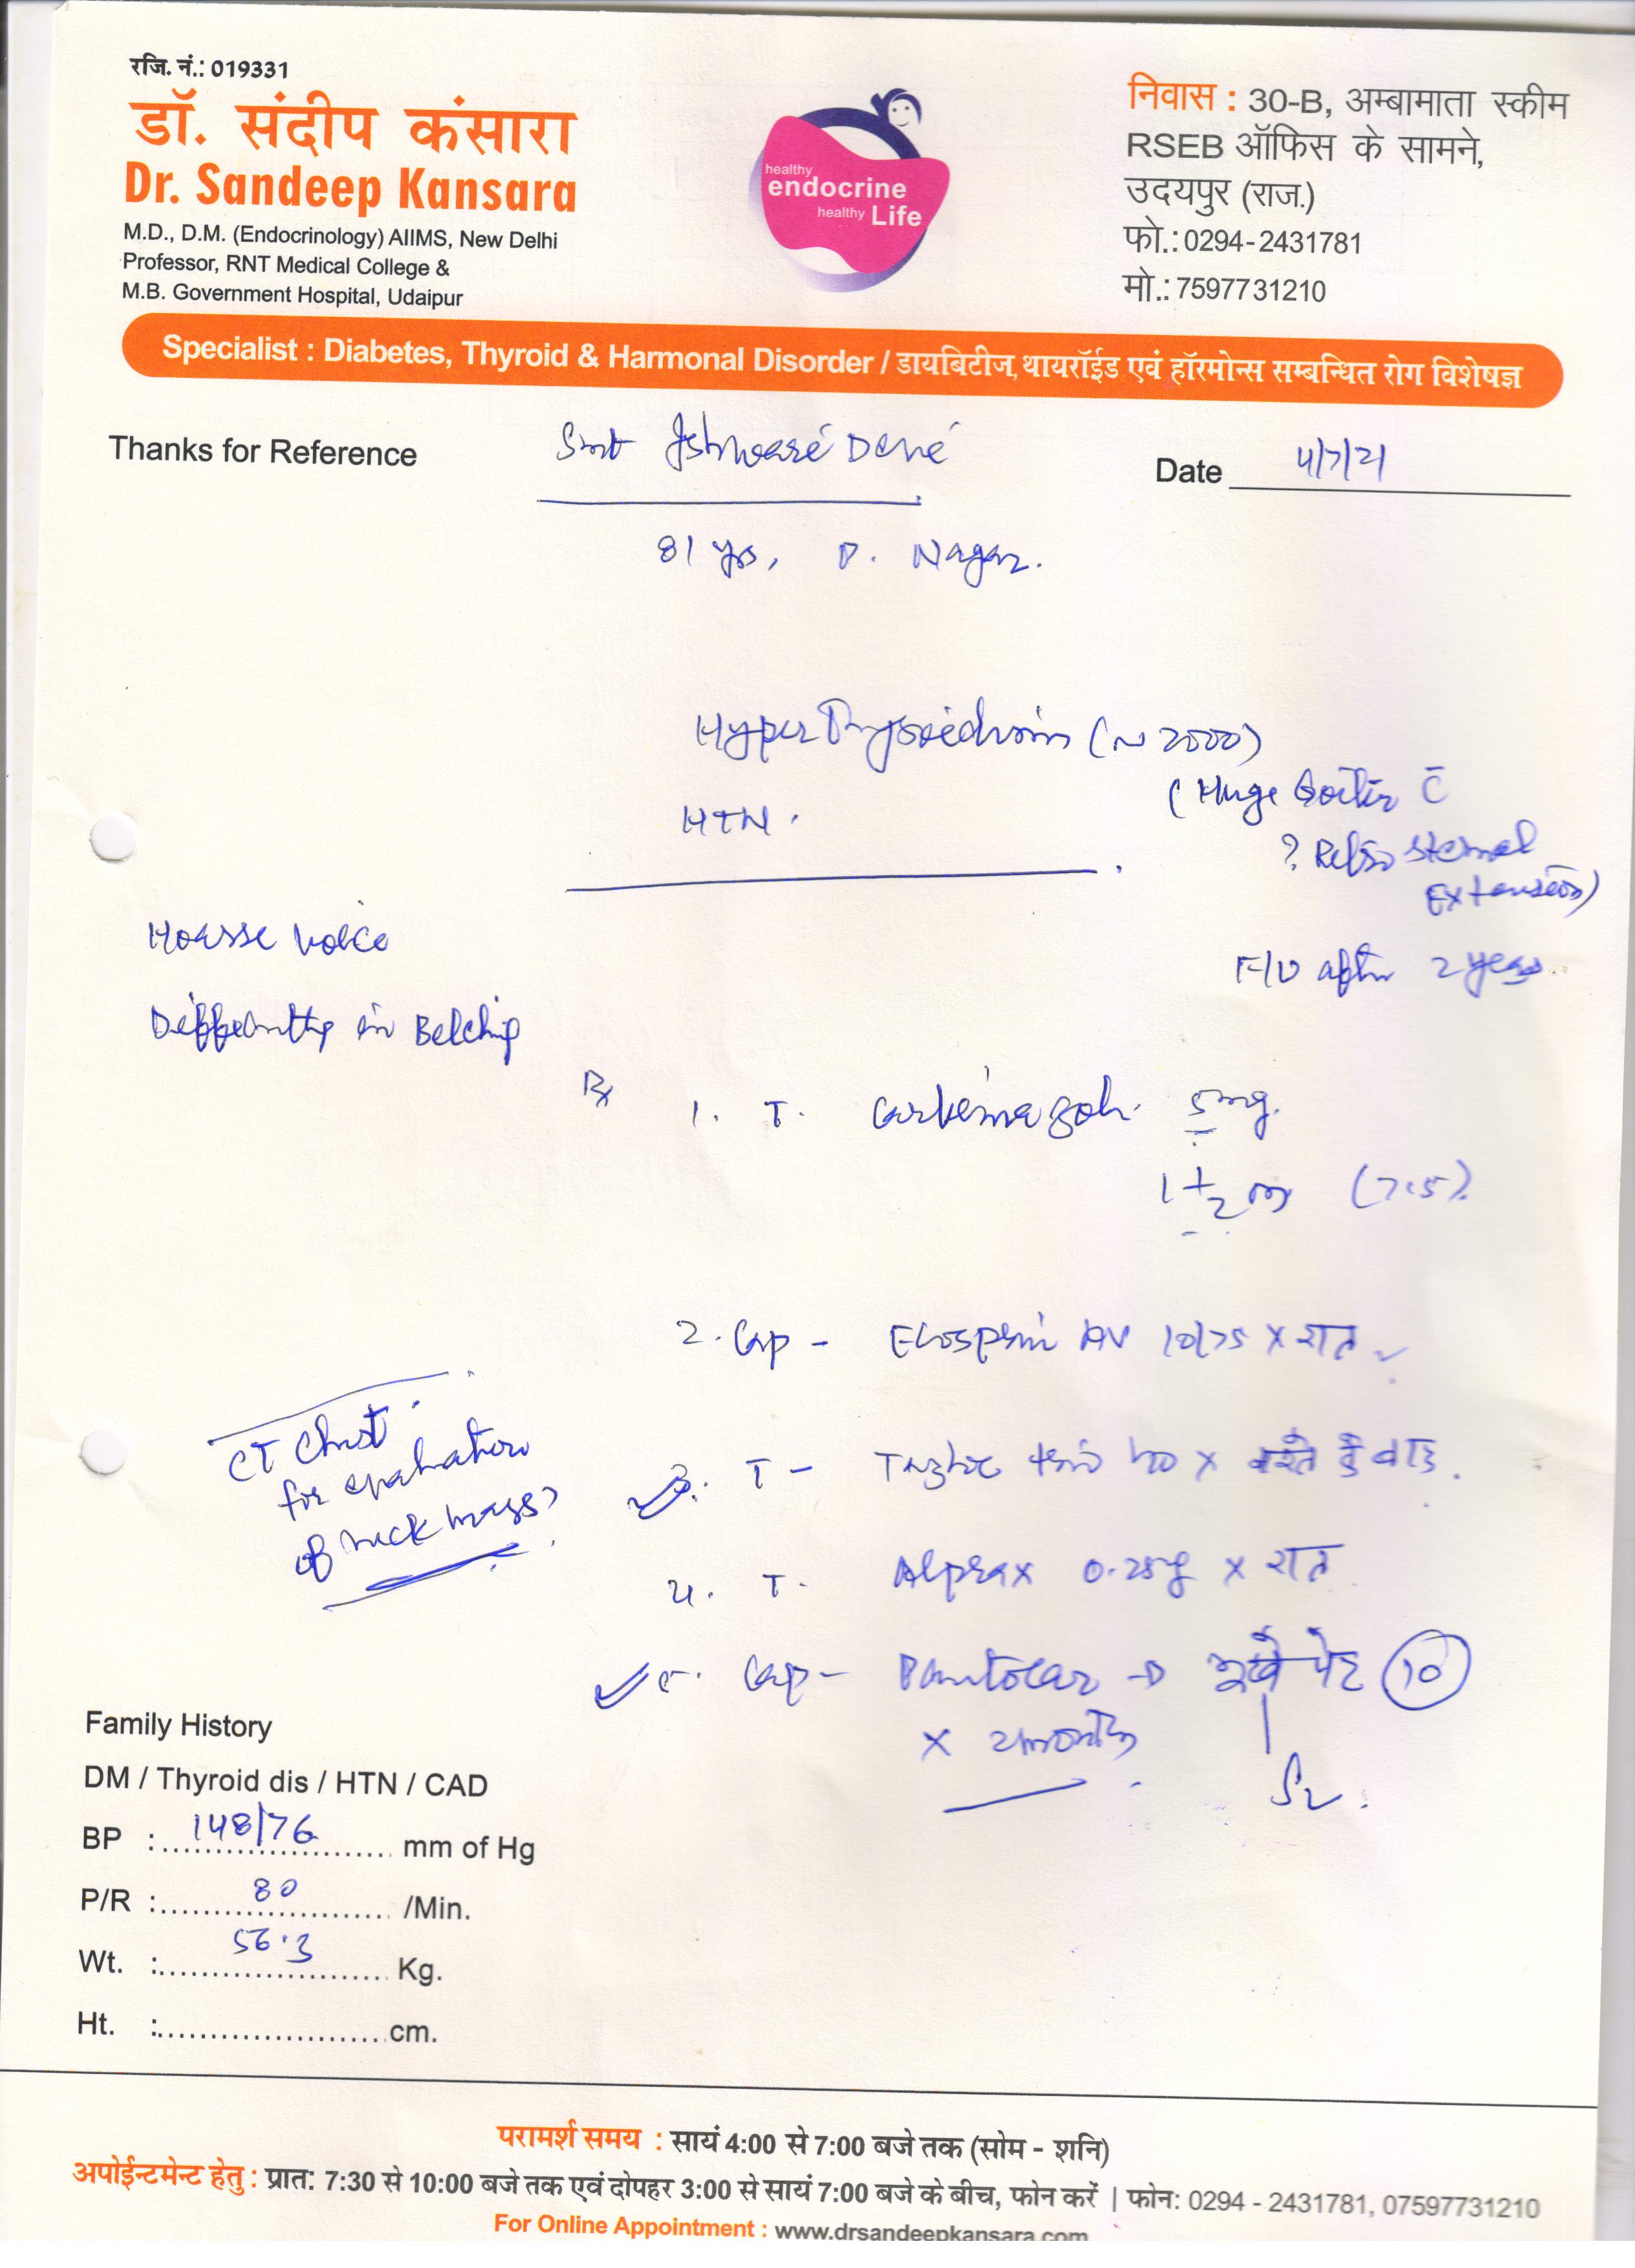 रजि. नं.: 019331
डॉ. संदीप कंसारा
Dr. Sandeep Kansara
M.D., D.M. (Endocrinology) AIIMS, New Delhi
Professor, RNT Medical College &
M.B. Government Hospital, Udaipur
healthy
endocrine
healthy Life
निवास : 30-B, अम्बामाता स्कीम
RSEB ऑफिस के सामने,
उदयपुर (राज.)
फो.: 0294-2431781
मो.: 7597731210
Specialist : Diabetes, Thyroid & Harmonal Disorder / डायबिटीज, थायरॉईड एवं हॉरमोन्स सम्बन्धित रोग विशेषज्ञ
Thanks for Reference Smt Ishwari Devi
Date 4/7/21
81 yrs, P. Nagar.
Hyperthyroidism (~ 2000)
(Huge Goiter c̄
? Retrosternal
Extension)
HTN.
F/U after 2 years.
Hoarse voice
Difficulty in Belching
Rx
1. T. Carbimazole 5mg.
1 + 1/2 (7.5).
2. Cap - Ecosprin AV 10/75 x रात
CT Chest
for evaluation
of neck mass
3. T - 40 x
4. T. Alprax 0.25mg x रात
5. Cap - Pantocar → भूखे पेट 10
x 2 months
Family History
DM / Thyroid dis / HTN / CAD
BP : 148/76 mm of Hg
P/R : 80 /Min.
Wt. : 56.3 Kg.
Ht. : cm.
परामर्श समय : सायं 4:00 से 7:00 बजे तक (सोम - शनि)
अपोईन्टमेन्ट हेतु : प्रात: 7:30 से 10:00 बजे तक एवं दोपहर 3:00 से सायं 7:00 बजे के बीच, फोन करें | फोन: 0294 - 2431781, 07597731210
For Online Appointment : www.drsandeepkansara.com